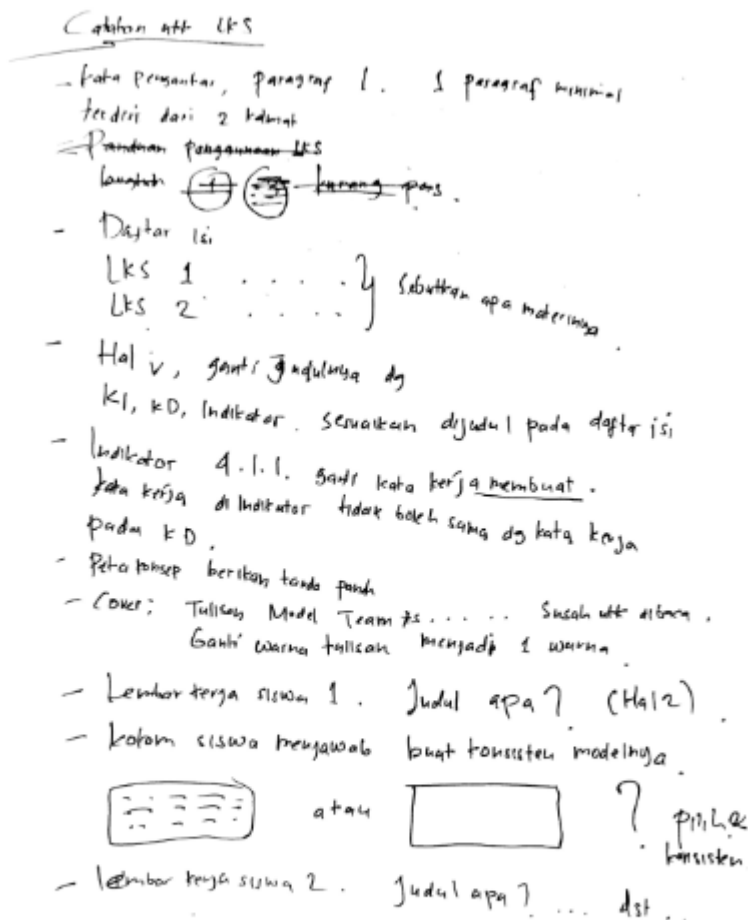 Catatan utk LKS
- Kata Pengantar, paragraf 1. 1 paragraf minimal
terdiri dari 2 kalimat
- Panduan penggunaan LKS
langkah 1 kurang pas.
- Daftar isi
LKS 1 . . . . .
LKS 2 . . . . . } Sebutkan apa materinya.
- Hal iv, ganti judulnya dg
KI, KD, Indikator. Sesuaikan dijudul pada daftar isi
- Indikator 4.1.1. ganti kata kerja membuat.
kata kerja di indikator tidak boleh sama dg kata kerja
pada KD.
- Peta konsep berikan tanda panah
- Cover: Tulisan Model Team ..... Susah utk dibaca.
Ganti warna tulisan menjadi 1 warna
- Lembar kerja siswa 1. Judul apa? (Hal 2)
- kolom siswa menjawab buat konsisten modelnya.
atau ? pilih &
konsisten
- lembar kerja siswa 2. Judul apa? ... dst.